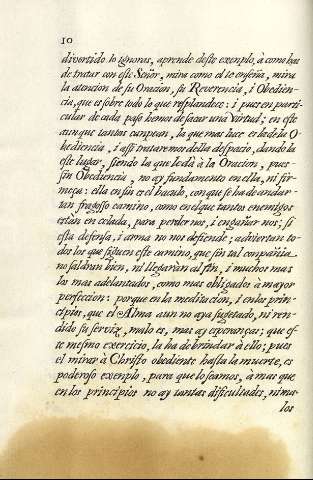 10
divertido lo ignoras, aprende deste exemplo, à como has
de tratar con este Señor, mira como el te enseña, mira
la atencion de su Oracion, su Reverencia, i Obedien-
cia, que es sobre todo lo que resplandece: i pues en parti-
cular de cada paso hemos de sacar una virtud; en este
aunque tantas campean, la que mas luce es la de la O-
bediencia, i assi trataremos della despacio, dando la
este lugar, siendo la que le dà à la Oracion, pues
sin Obediencia, no ay fundamento en ella, ni fir-
meça: ella en sin es el baculo, con que se ha de andar
tan fragosso camino, como en el que tantos enemigos
estàn en celada, para perdernos, i engañarnos; si
esta defensa, i arma no nos defiende; adviertan to-
dos los que siguen este camino, que sin tal compañia
no saldran bien, ni llegaràn al fin, i muchos mas
los mas adelantados, como mas obligados à mayor
perfeccion: porque en la meditacion, i en los prin-
cipios, que el Alma aun no aya sugetado, ni ren-
dido su serviz, malo es, mas ay esperanças; que es-
te mesmo exercicio, la ha de brindar à ello; pues
el mirar à Christo obediente hasta la muerte, es
poderoso exemplo, para que lo seamos, à mas que
en los principios no ay tantas dificultades, ni ma-
los